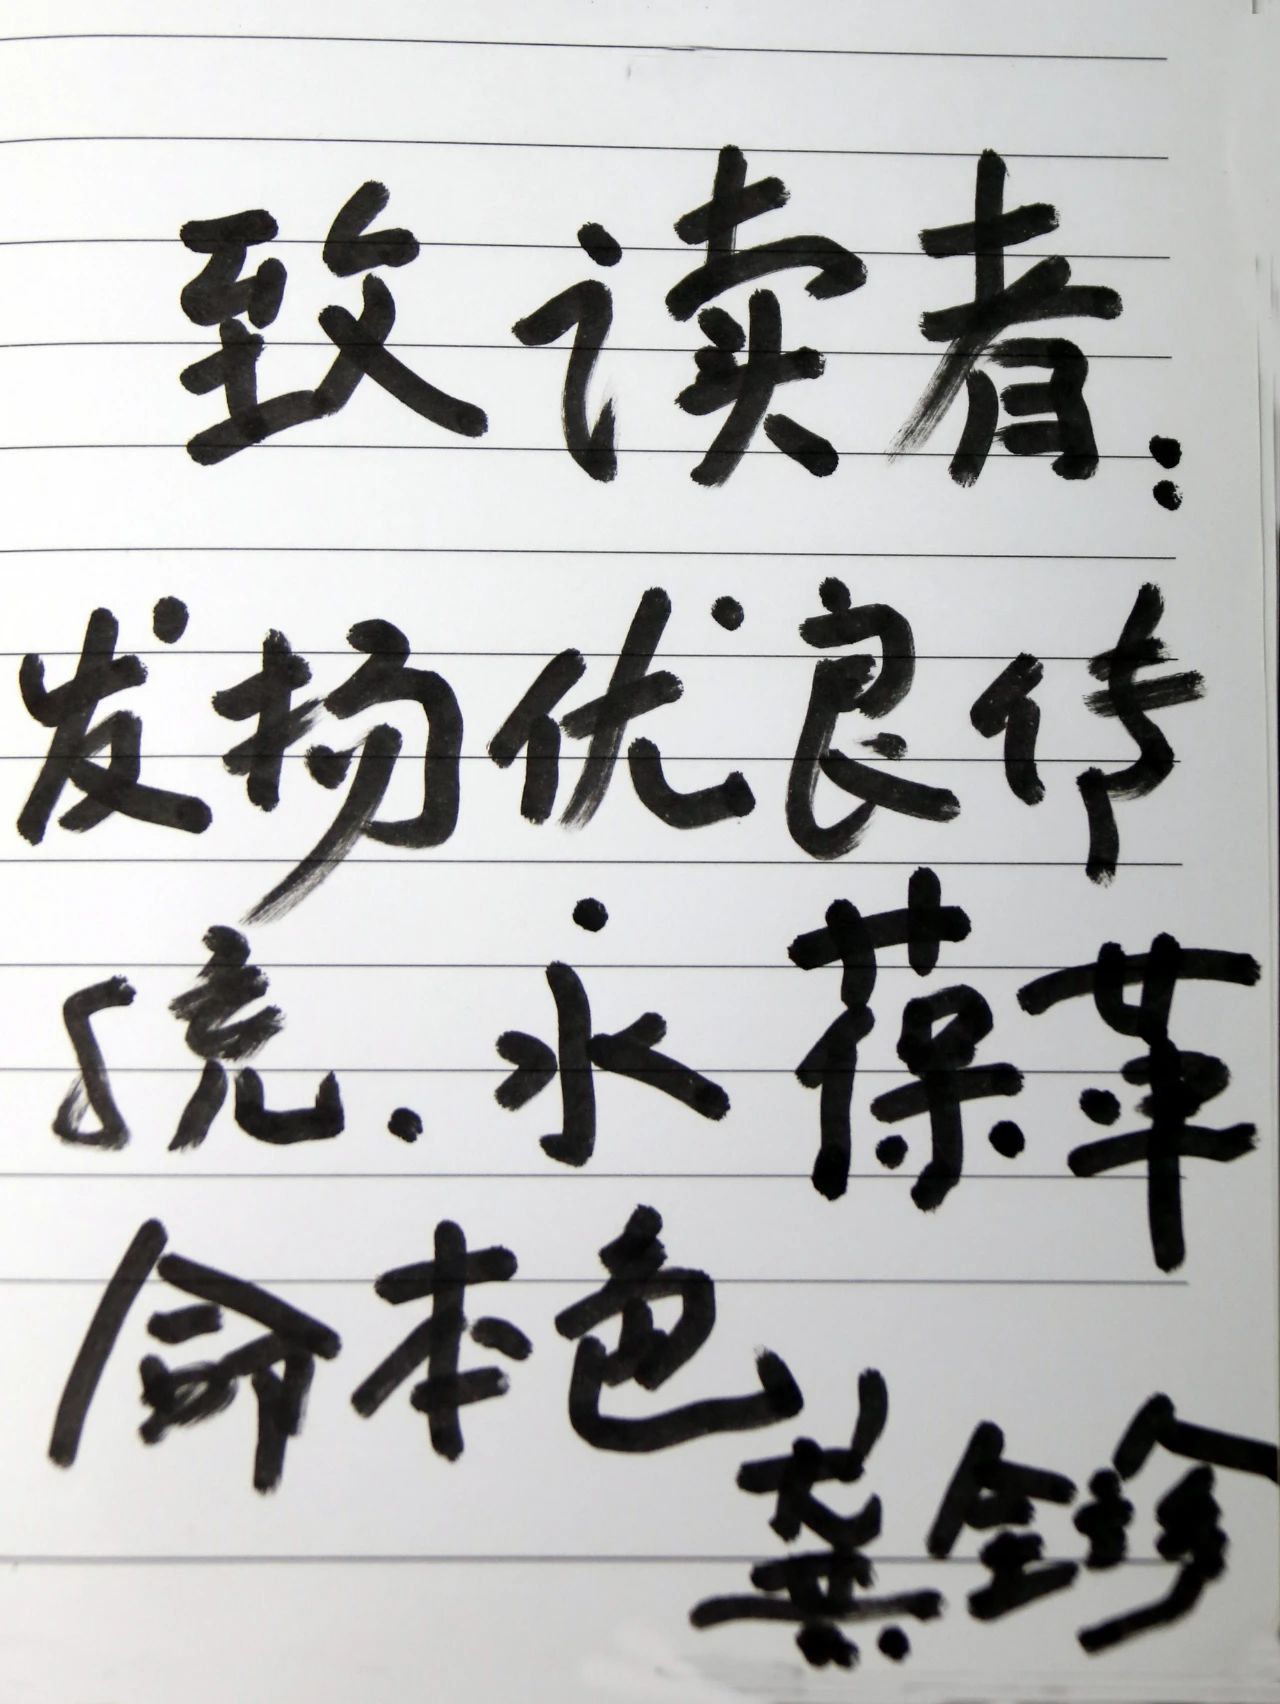 致读者:
发扬优良传
统.永葆革
命本色
龚全珍